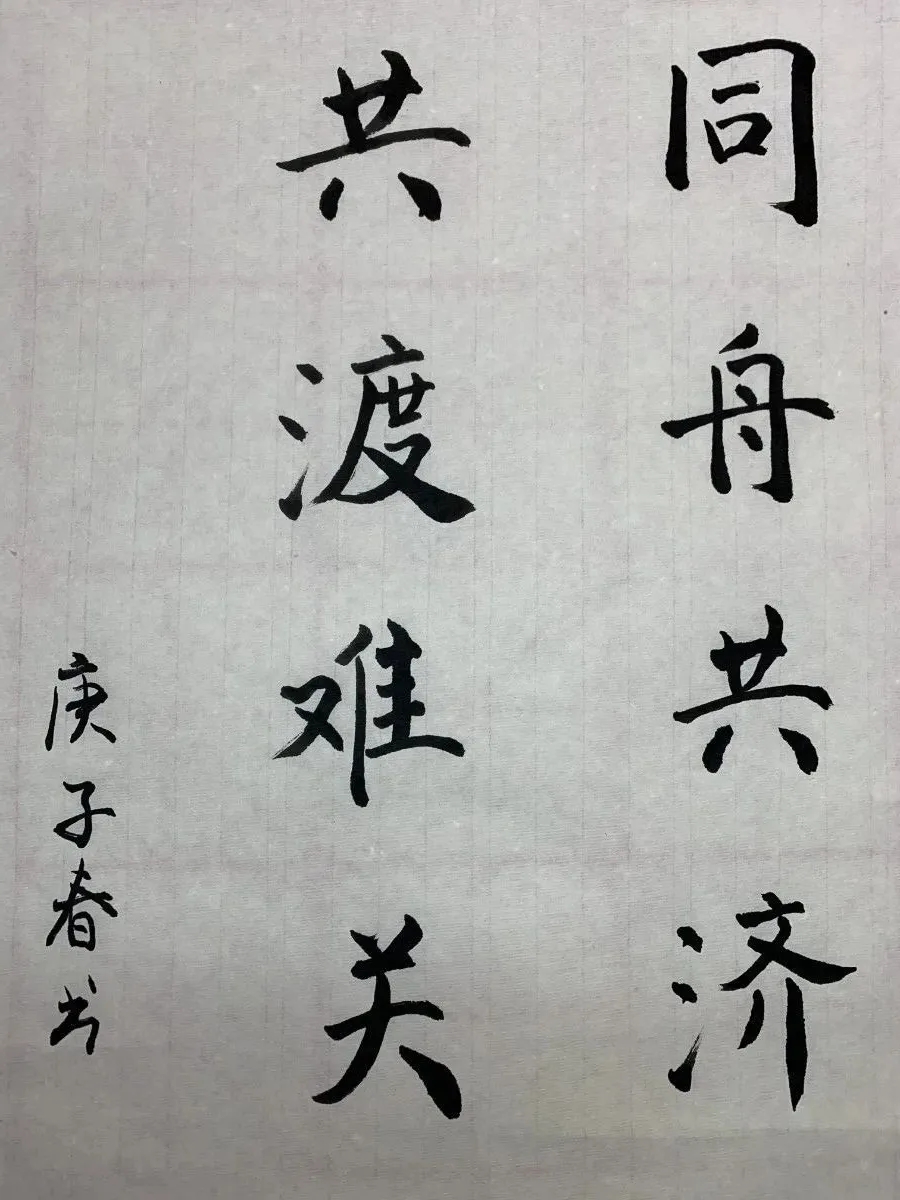 同舟共济
共渡难关
庚子春书